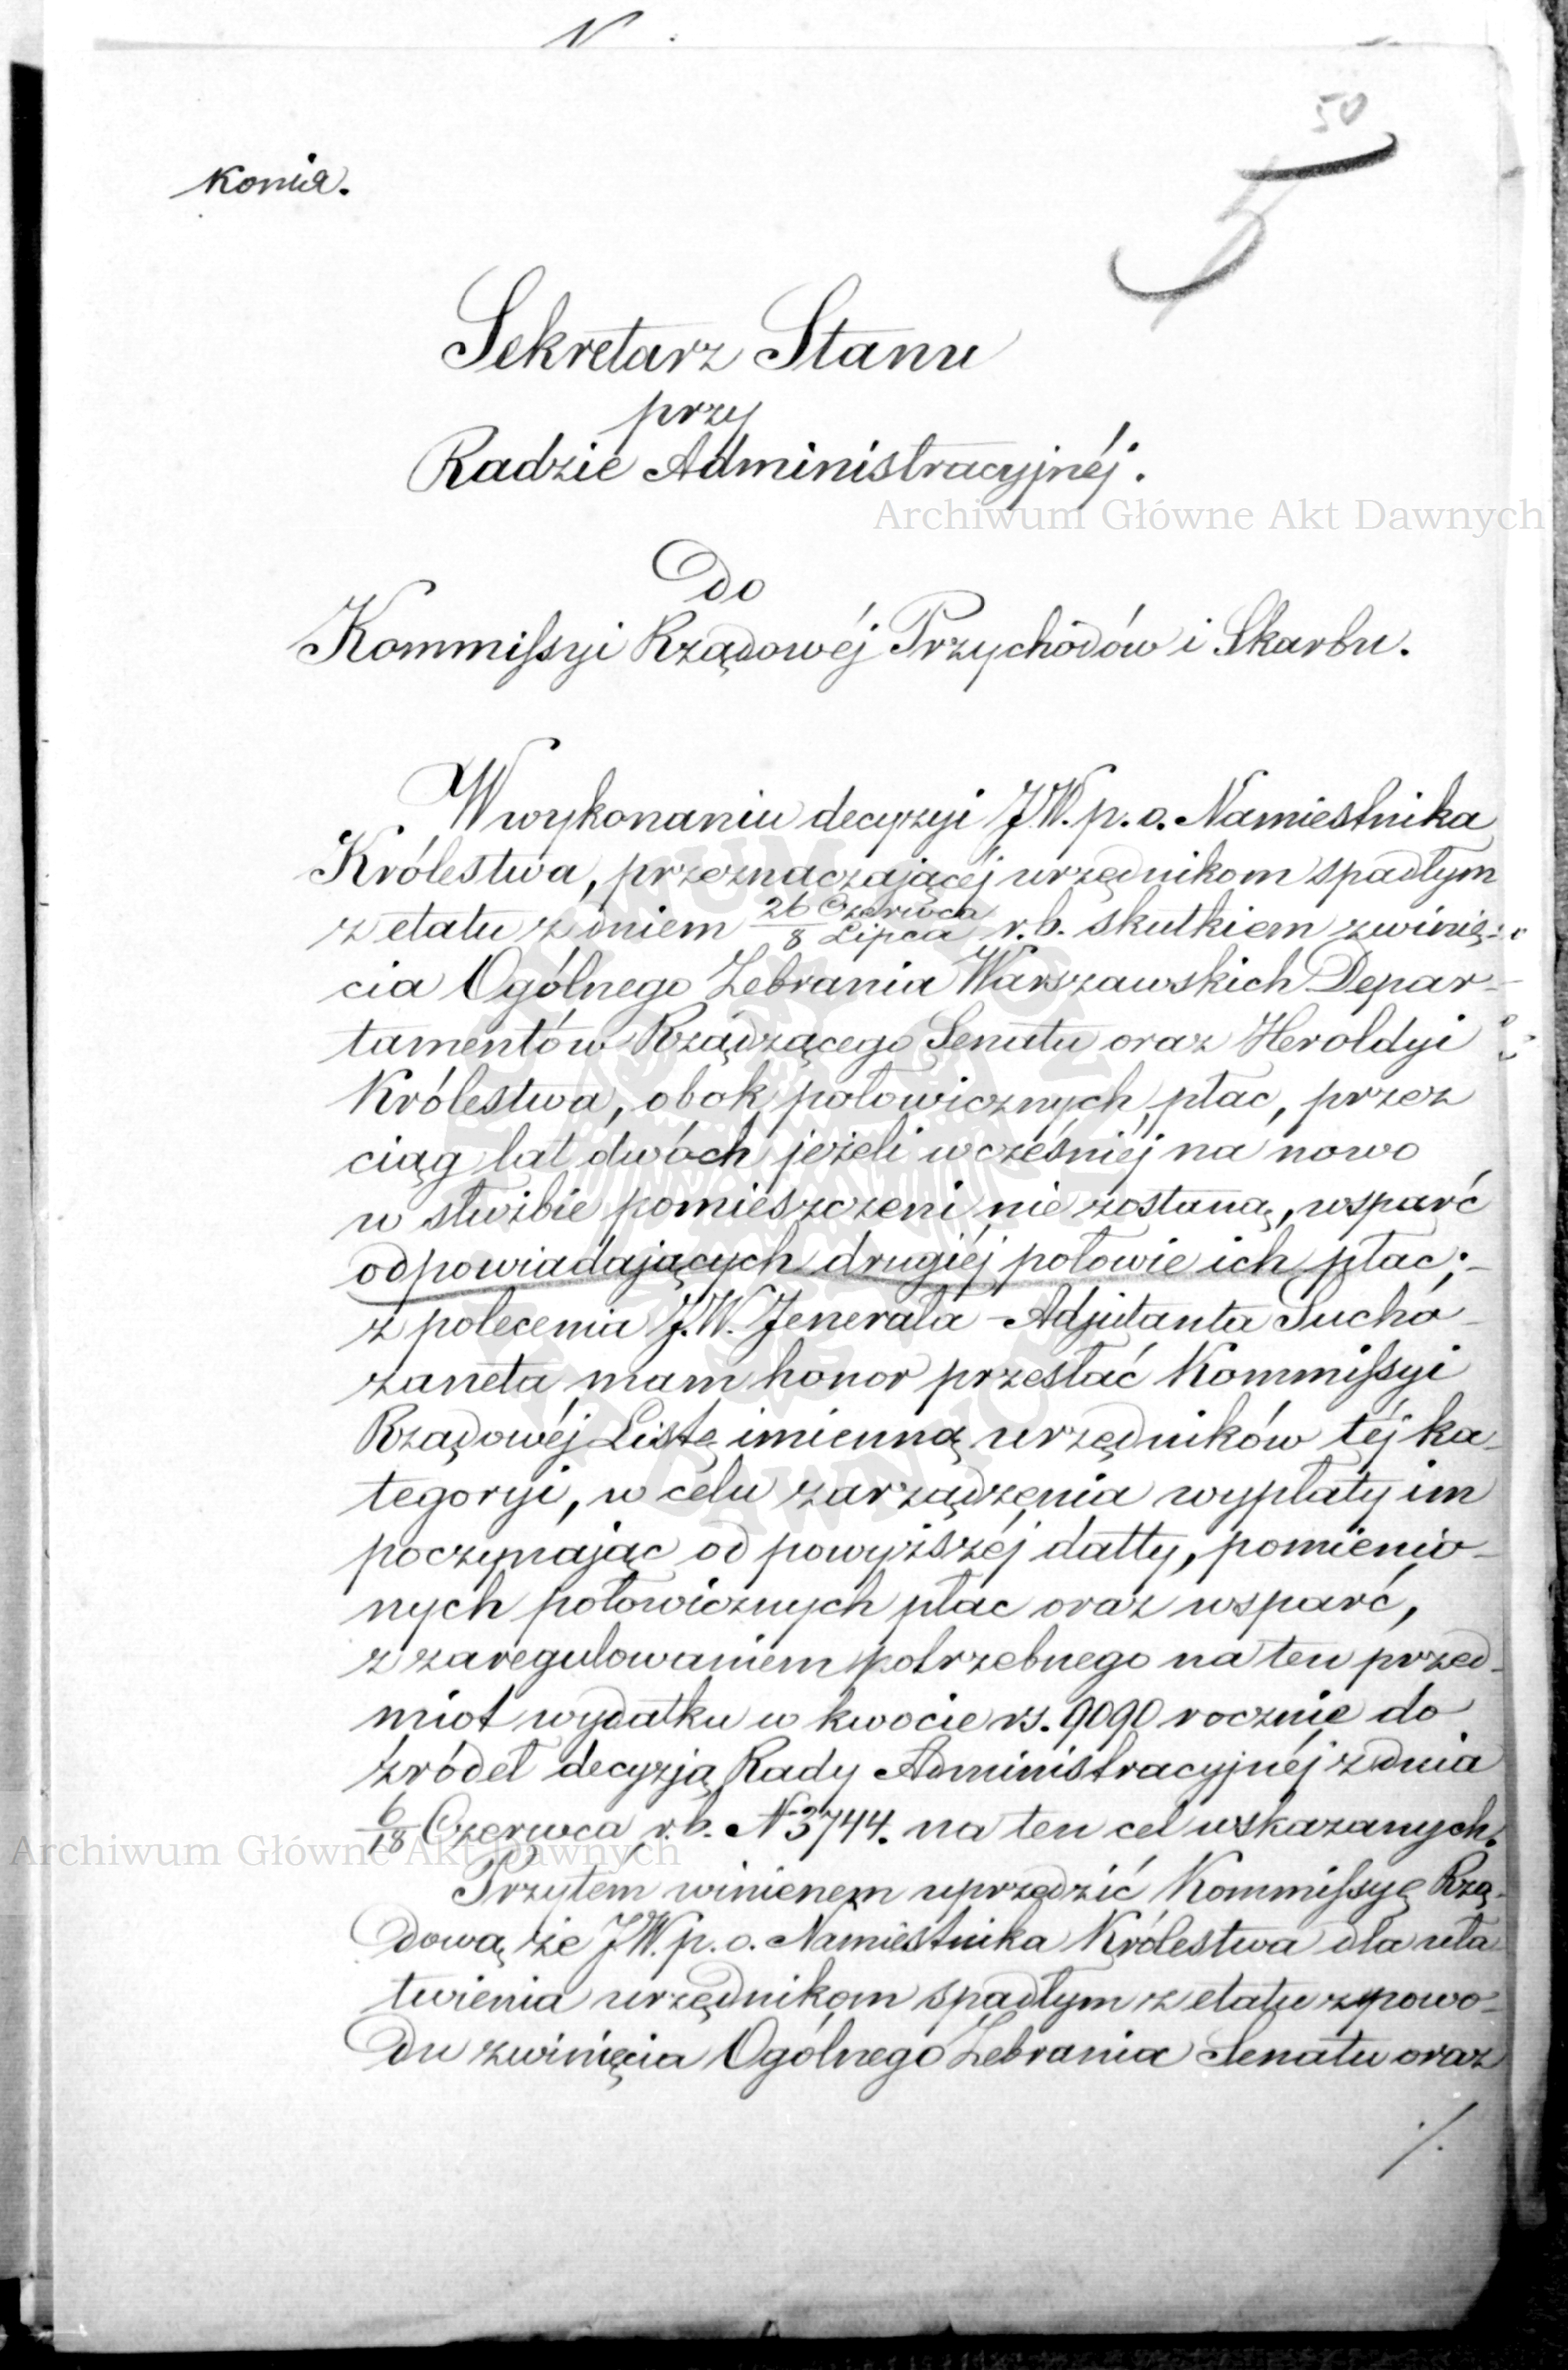 N
50
копия.
Sekretarz Stanu
przy
Radzie Administracyjnéj.
Archiwum Główne Akt Dawnych
Do
Kommissyi Rządowéj Przychodów i Skarbu.
W wykonaniu decyzyi J.W. p. o. Namiestnika
Królestwa, przeznaczającéj urzędnikom spadłym
z etatu z dniem 26 Czerwca / 8 Lipca r. b. skutkiem zwinię-
cia Ogólnego Zebrania Warszawskich Depar-
tamentów Rządzącego Senatu oraz Heroldyi
Królestwa, obok połowicznych płac, przez
ciąg lat dwóch jeżeli wcześniéj na nowo
w służbie pomieszczeni nie zostaną, wsparć
odpowiadających drugiéj połowie ich płac;-
z polecenia J.W. Jenerała-Adjutanta Sucho-
zaneta mam honor przesłać Kommissyi
Rządowéj Listę imienną urzędników téj ka-
tegoryi, w celu zarządzenia wypłaty im
poczynając od powyższéj datty, pomienio-
nych połowicznych płac oraz wsparć,
z zaregulowaniem potrzebnego na ten przed-
miot wydatku w kwocie rs. 9090 rocznie do
źródeł decyzją Rady Administracyjnéj z dnia
6/18 Czerwca r. b. N 3744. na ten cel wskazanych.
Archiwum Główne Akt Dawnych
Przytem winienem uprzedzić Kommissyę Rzą-
dową że JW. p. o. Namiestnika Królestwa dla uła
twienia urzędnikom spadłym z etatu z powo-
du zwinięcia Ogólnego Zebrania Senatu oraz
./.